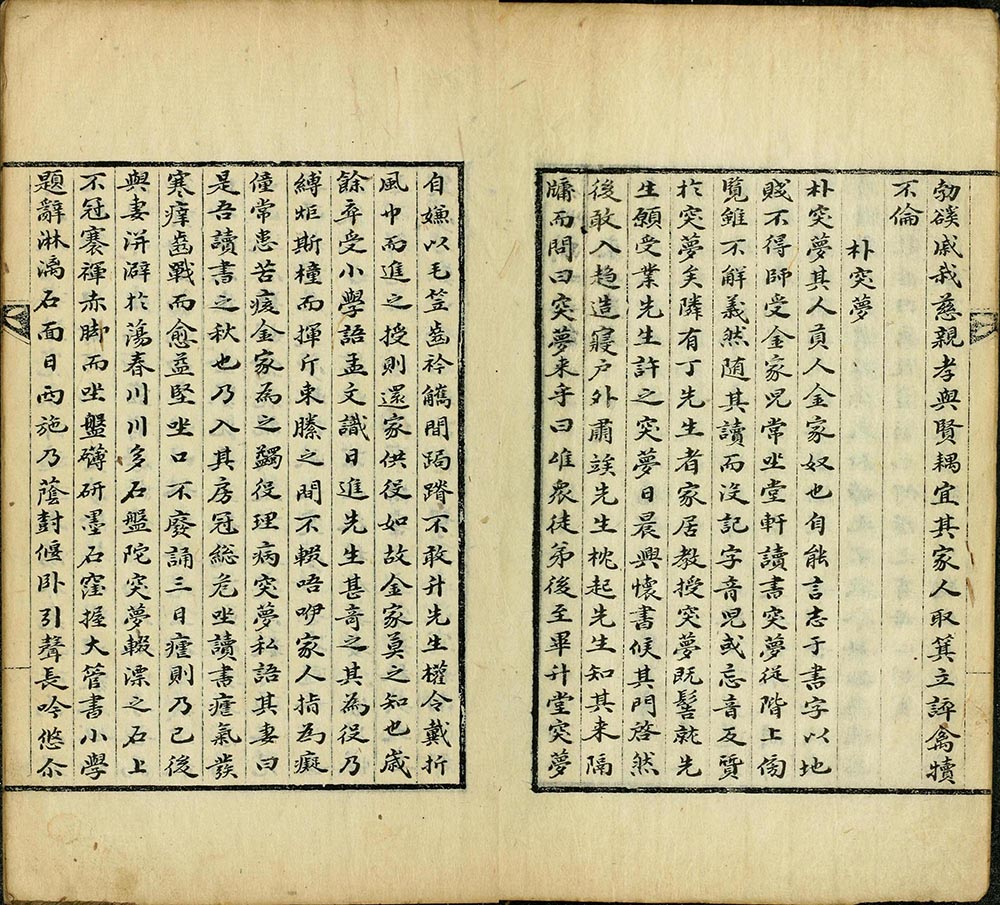 勃磎戚哉慈親孝與賢耦宜其家人取箕立誶禽犢
不倫
朴突夢
朴突夢其人貟人金家奴也自能言志于書字以地
賤不得師受金家児常坐堂軒讀書突夢從階上傍
覽雖不解義然随其讀而沒記字音児或忘音反質
於突夢矣隣有丁先生者家居教授突夢既髻就先
生願受業先生許之突夢日晨興懷書候其門啓然
後敢入趍造寢戶外肅竢先生枕起先生知其来隔
牖而問曰突夢来乎曰唯衆徒弟後至畢升堂突夢
自嫌以毛笠齒衿觿間跼蹐不敢升先生權令戴折
風巾而進之授則還家供役如故金家莫之知也歲
餘卒受小學語孟文識日進先生甚奇之其為役乃
縛炬斯橦而揮斤束縢之間不輟唔咿家人指為癡
僮常患苦痎金家為之蠲役理病突夢私語其妻曰
是吾讀書之秋也乃入其房冠総危坐讀書瘧氣發
寒瘁齒戰而愈益堅坐口不廢誦三日瘧則乃已後
與妻洴澼於蕩春川川多石盤陀突夢輟漂之石上
不冠褰褌赤脚而坐盤礴研墨石窪握大管書小學
題辭淋漓石面日西施乃蔭封偃卧引聲長吟悠尒